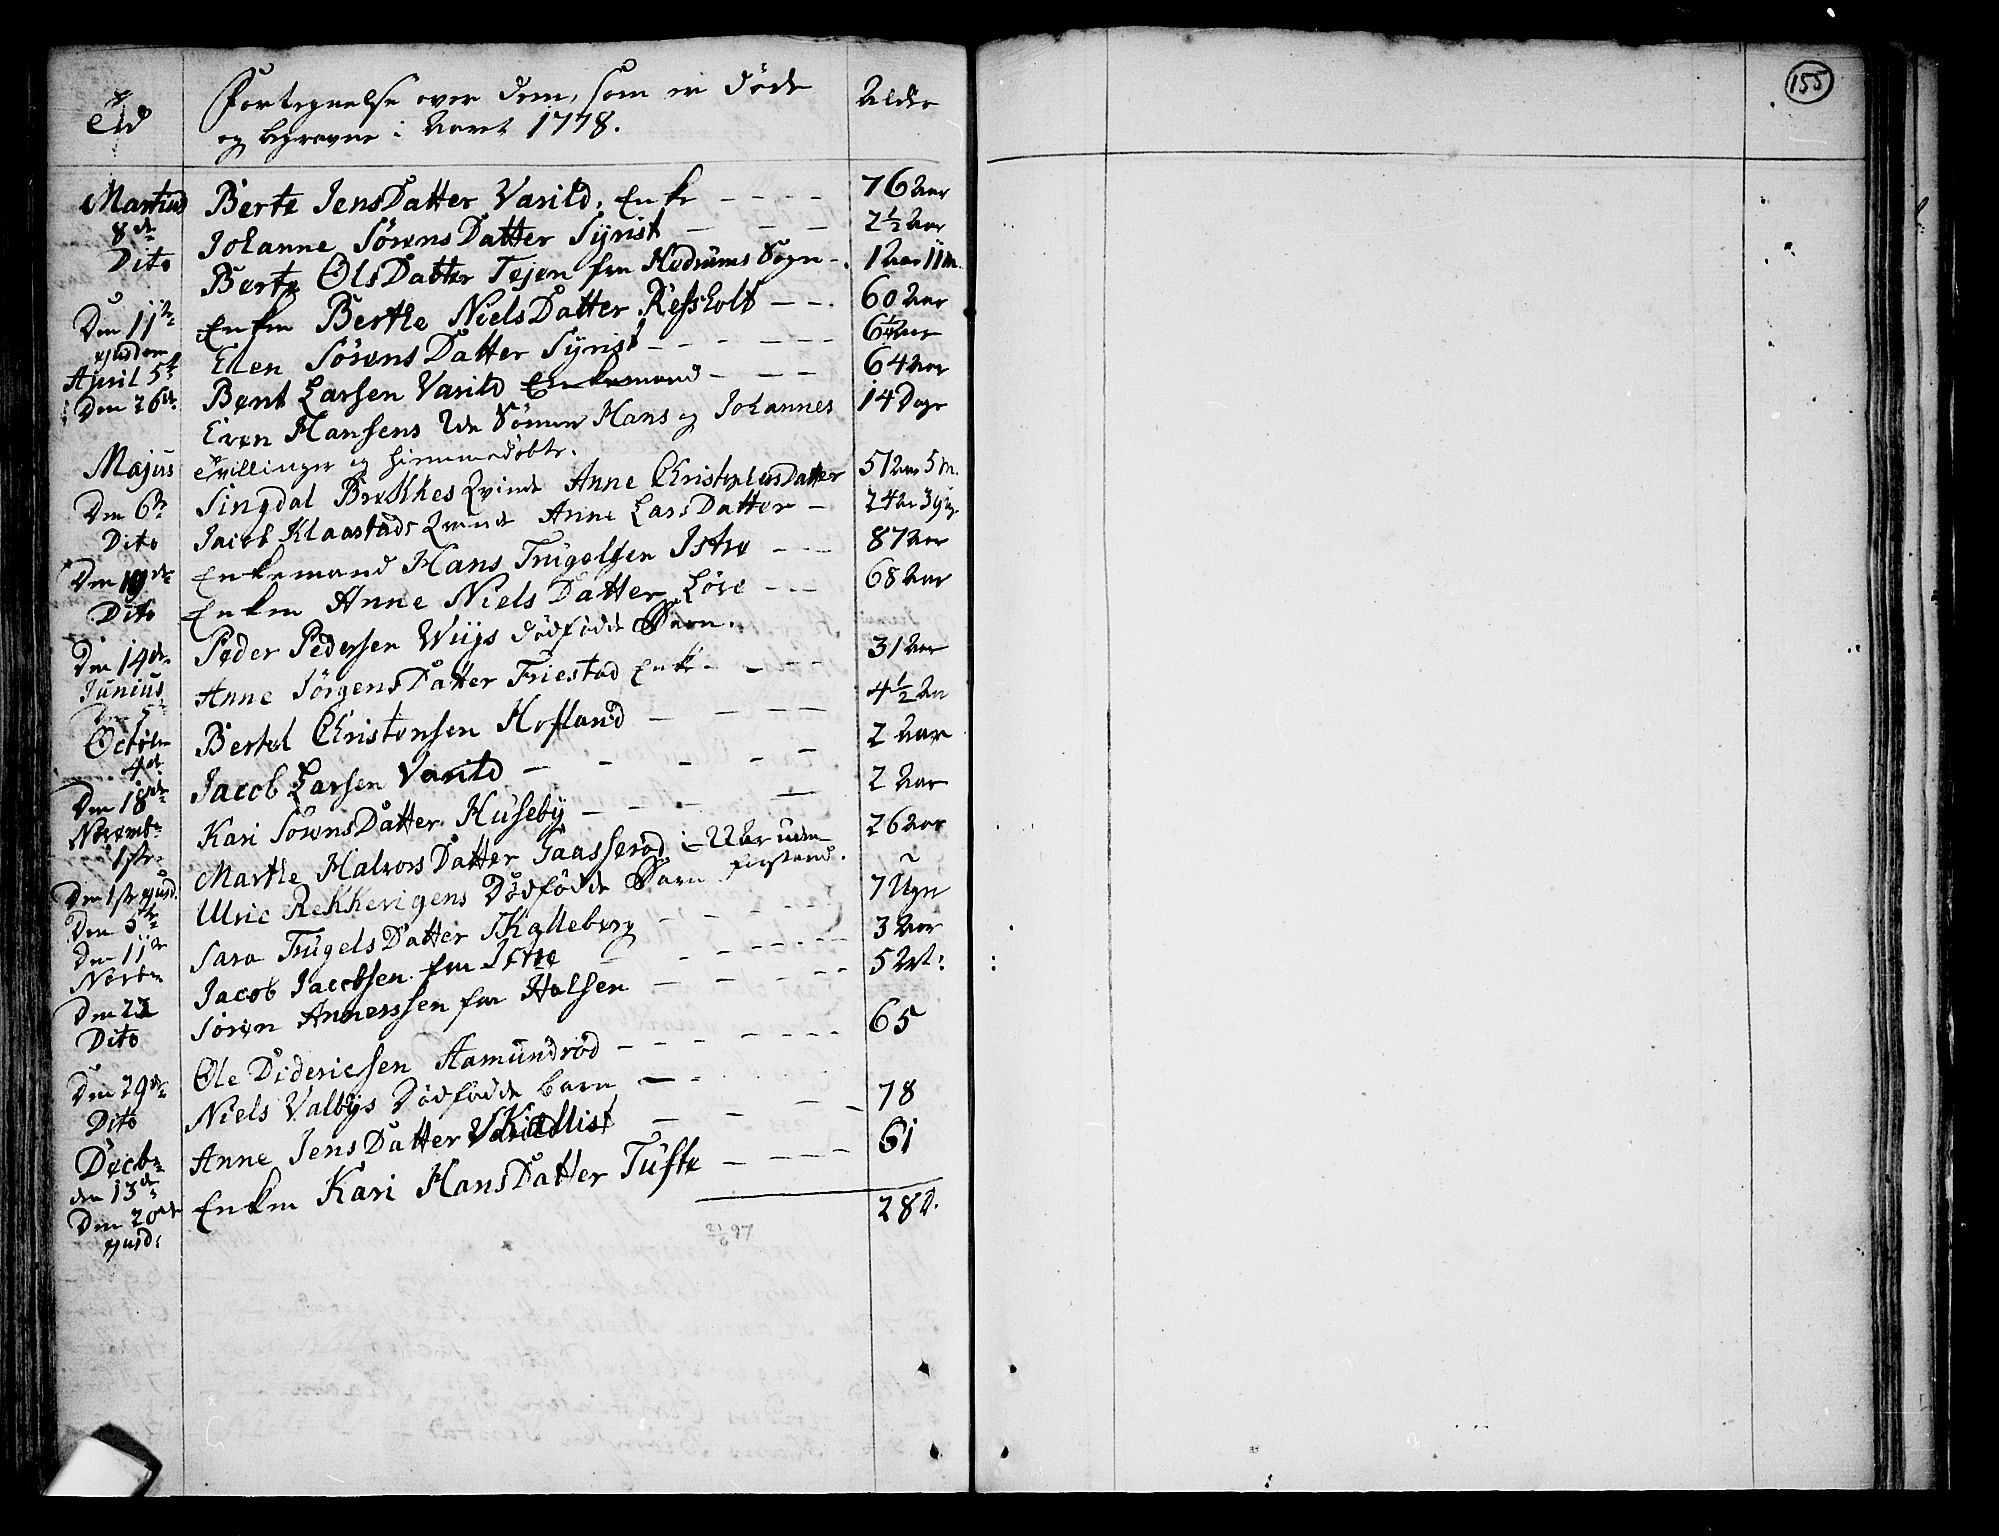 155
Tid Fortegnelse over dem, som er døde Alder
og begravne i Aaret 1778.
Martius Berte JensDatter Varild, Enke - - - - 76 Aar
8de Johanne SörensDatter Syrist - - - 2 1/2 Aar
Dito Berte OlsDatter Tejen fra Hedrums Sogn - . 1 Aar 11 M.
Den 11te Enken Berthe NielsDatter Ressholt - - - 60 Aar
ejusdem Elen SörensDatter Syrist - - - - - - Aar
April 5te Bent Larsen Varild Enkemand - - - 64 Aar
Den 26de Even Hansens 2de Sönner Hans og Johannes 14 Dage
Tvillinger og hiemmedöbte.
Majus Singdal Kvinde Anne ChristophersDatter 51 Aar 5 M.
Den 6te Jacob Klaastads Kvinde Anne LarsDatter - 24 Aar
Dito Enkemand Hans Trugelsen Istre - - - 87 Aar
Den 19de Enken Anne NielsDatter Löve - - - 68 Aar
Dito Peder Pedersen Wiiys dödfödde Barn.
Den 14de Anne JörgensDatter Friestad Enke - - - - 31 Aar
Junius
Den 5te Bertel Christensen Hofland - - - - 4 1/2 Aar
Octobr
4de Jacob Larsen Varild - - - - - 2 Aar
Den 18de Kari SörensDatter Huseby - - - - 2 Aar
Novembr
1ste Marthe HalvorsDatter Gaasseröd i - 22 Aar uden 26 Aar
Forstand.
Den 1ste ejusd. Ulric Rekkevigens Dödfödde Barn ~
Den 5te Sara TrugelsDatter Skalleberg - - - - 7 Uger
Den 11te Jacob Jacobsen fra Istre - - - - - - 3 Aar
Novbr Sören Anderssen fra Halsen - - - - - - 5 Aar
Den 23
Dito Ole Didericsen Aamundröd - - - - - - - 65
Den 29de Niels Valbys Dödfödde barn - - -
Dito Anne JensDatter Kallist - - - - 78
Decbr Enken Kari HansDatter Tufte - - - - 61
den 13de
Den 20de 28 D.
ejusd: